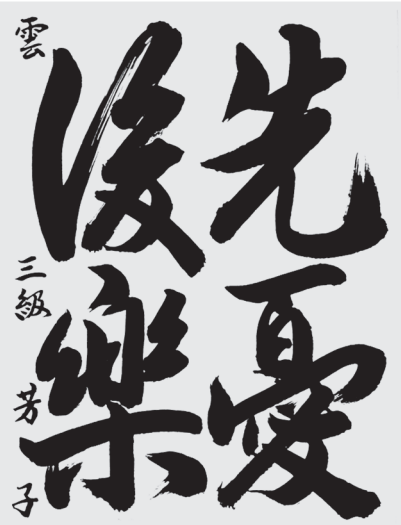 先憂
後樂
雲 三級 芳子